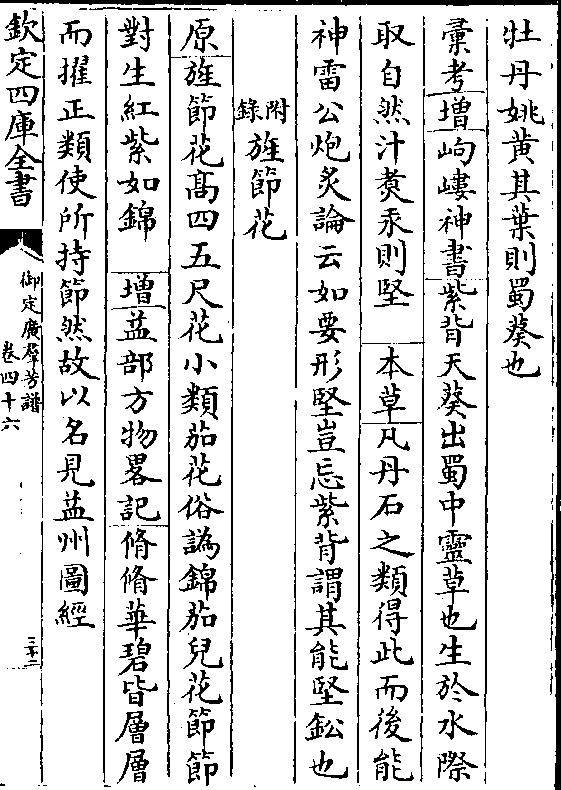 牡丹姚黃其葉則蜀葵也
彙考增岣嶁神書紫背天葵出蜀中靈草也生於水際
取自然汁煑汞則堅　本草凡丹石之類得此而後能
神雷公炮炙論云如要形堅豈忘紫背謂其能堅鈆也
附錄旌節花
原旌節花髙四五尺花小類茄花俗譌錦茄兒花節節
對生紅紫如錦　增益部方物畧記脩脩華碧皆層層
而擢正類使所持節然故以名見益州圖經
欽定四庫全書
御定廣羣芳譜
卷四十六